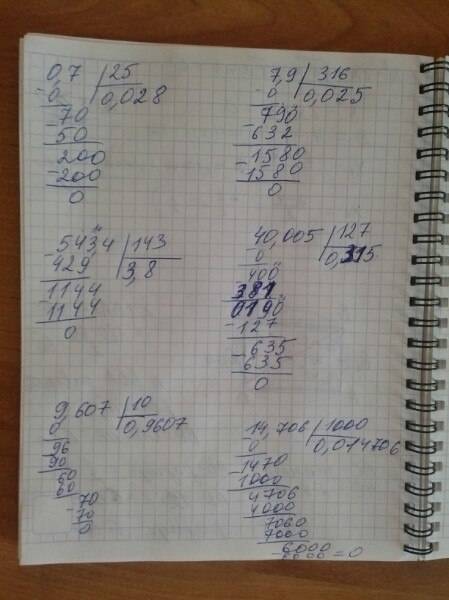 0,7 | 25
-0 | 0,028
-70
50
200
-200
0
7,9 | 316
-0 | 0,025
-790
-632
-1580
-1580
0
-543,4 | 143
429 | 3,8
1144
-1144
0
40,005 | 127
0 | 0,315
400
381
0190
-127
-635
635
0
9,607 | 10
0 | 0,9607
96
90
60
60
-70
70
0
14,706 | 1000
-0 | 0,014706
-1470
1000
4706
4000
7060
7000
-6000
6000=0